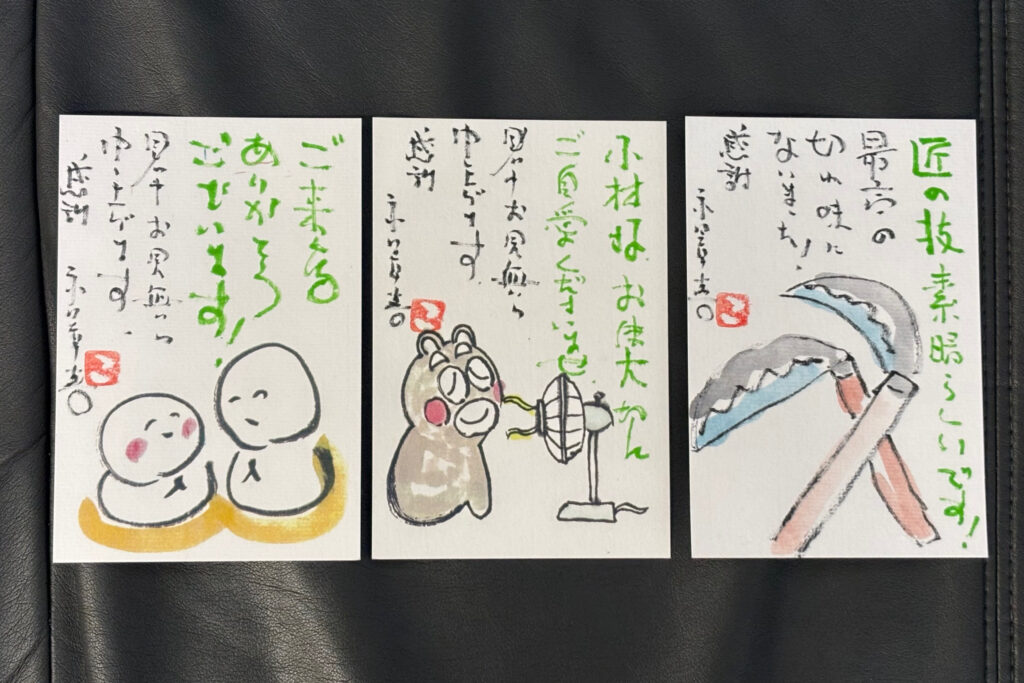 ご来店
ありがとう
ございます!
暑中お見舞い
申し上げます
感謝
小林様 お体大切に
ご自愛くださいませ
暑中お見舞い
申し上げます
感謝
匠の技 素晴らしいです!
最高の
切れ味に
なりました!
感謝